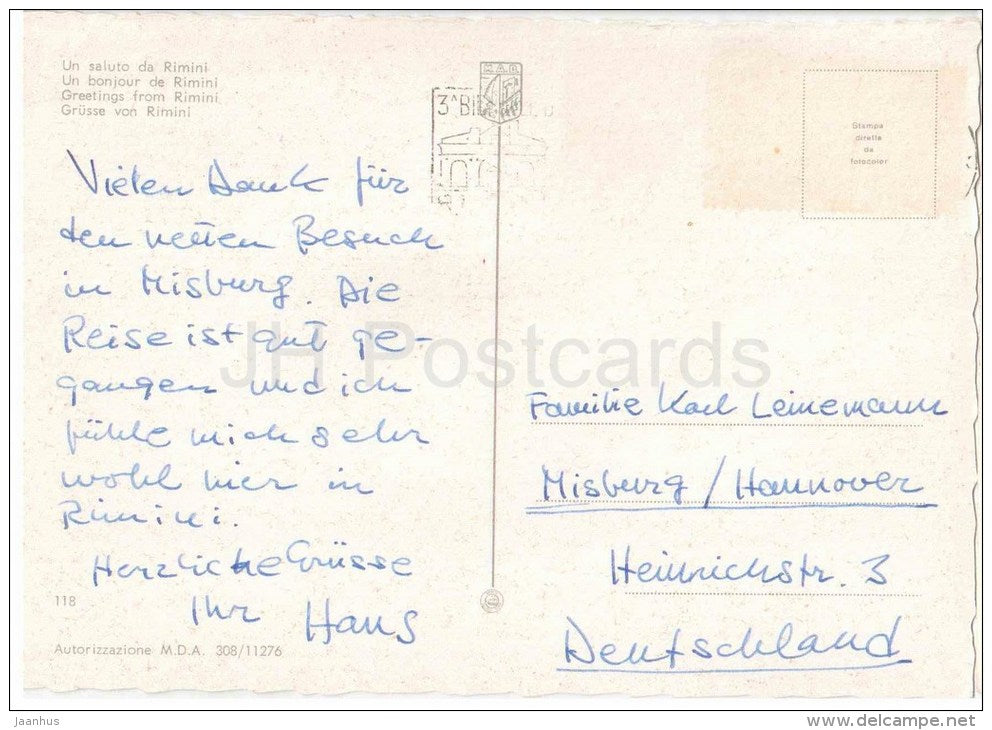 Un saluto da Rimini
Un bonjour de Rimini
Greetings from Rimini
Grüsse von Rimini
Vielen Dank für
den netten Besuch
in Misburg. Die
Reise ist gut ge-
gangen und ich
fühle mich sehr
wohl hier in
Rimini.
Herzliche Grüsse
Ihr Hans
118
Autorizzazione M.D.A. 308/11276
3ª
Stampa
diretta
da
fotocolor
Familie Karl Leinemann
Misburg / Hannover
Heinrichstr. 3
Deutschland
JH Postcards
Jaanhus
www.delcampe.net